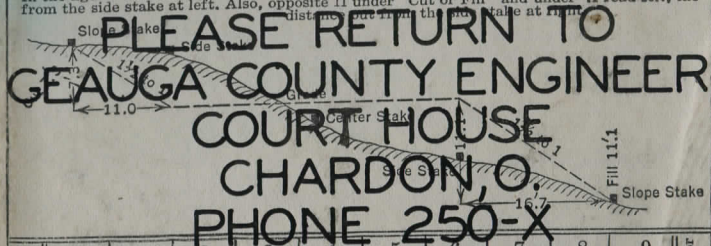 from the side stake at left. Also, opposite 11 under "Cut or Fill" and under
distance out from the side stake at right.
PLEASE RETURN TO
GEAUGA COUNTY ENGINEER
COURT HOUSE
CHARDON, O.
PHONE 250-X
Slope Stake
Side Stake
Grade
11.0
Center Stake
Side Stake
Fill 11.1
Slope Stake
16.7